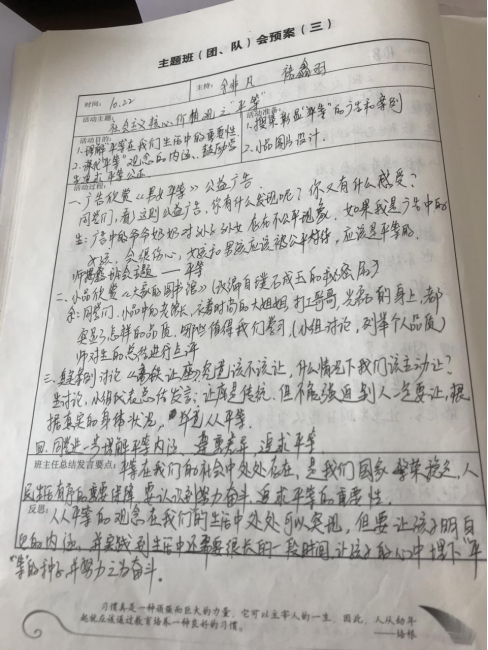 主题班（团、队）会预案（三）
时间：10.22 主持：
活动主题：社会主义核心价值观之“平等”
活动目的： 活动准备：
1.理解“平等”在我们生活中的重要性 1.搜集彰显“平等”的广告和案例
2.探究“平等”观念的内涵、鼓励学 2.小品图片设计.
生追求平等公正
活动过程：
一.广告欣赏《男女平等》公益广告.
同学们，看了这则公益广告，你有什么发现呢？你又有什么感受？
生：广告中的爷爷奶奶对孙子孙女存在不公平现象，如果我是广告中的
女孩，会很伤心，女孩和男孩应该被公平待遇，应该是平等的.
师揭示班会主题——平等
二.小品欣赏《大家的图书馆》
师：同学们，小品中的老馆长、衣着时尚的大姐姐、打工哥哥，身上，都
突显了怎样的品质，哪些值得我们学习.（小组讨论，列举个人品质）
师对生的总结进行点评
三.案例讨论《乘铁让座》究竟该不该让，什么情况下我们该主动让？
生讨论，小组代表总结发言：让座是传统，但不能强迫别人一定要让，根
据真实的身体状况，人人平等.
四.同学生一书理解平等内涵，尊重差异，追求平等.
班主任总结发言要点：平等在我们的社会中处处存在，是我们国家繁荣稳定，人
民生活有序的重要保障，要认识到努力奋斗，追求平等的重要性.
反思：人人平等的观念在我们的生活中处处可以实现，但要让孩子明白
它的内涵，并实践到生活中还需要很长的一段时间，让孩子的心中埋下“平
等”的种子，并努力之为奋斗.
习惯真是一种顽强而巨大的力量，它可以主宰人的一生，因此，人从幼年
起就应该通过教育培养一种良好的习惯。
——培根